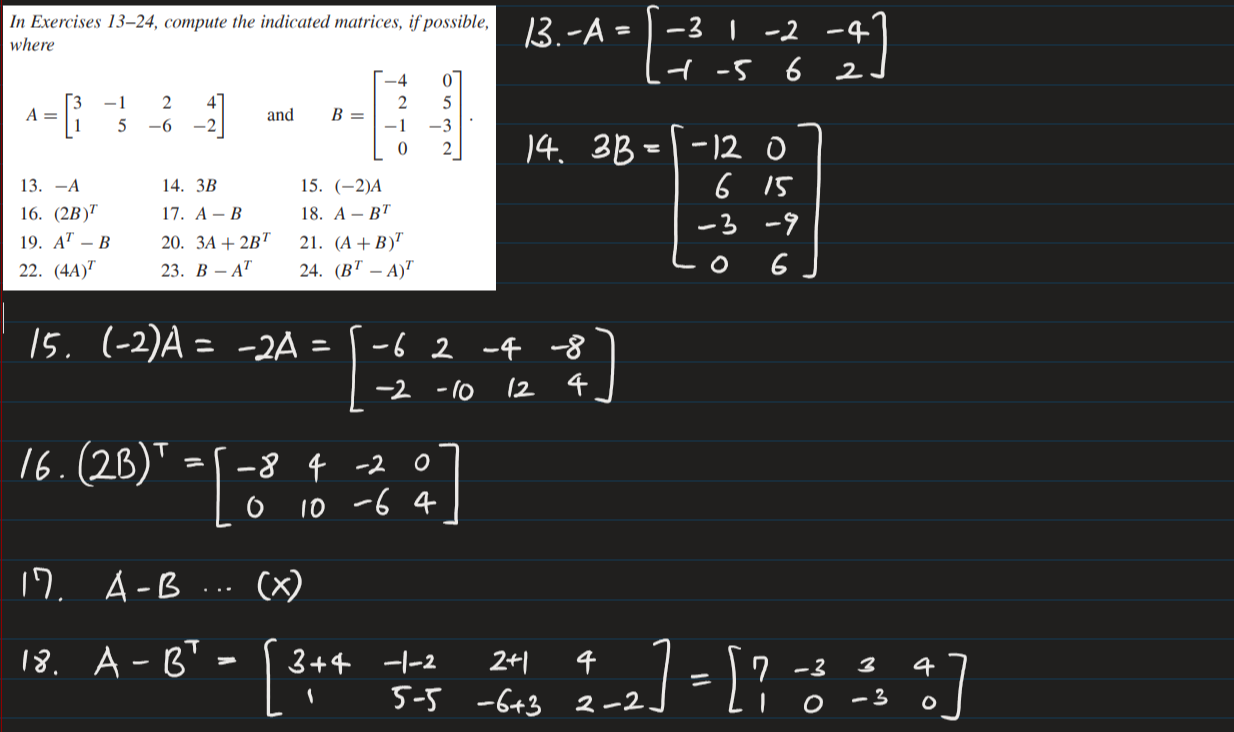 In Exercises 13–24, compute the indicated matrices, if possible,
where
A = [3 −1 2 4; 1 5 −6 −2] and B = [−4 0; 2 5; −1 −3; 0 2].
13. −A 14. 3B 15. (−2)A
16. (2B)ᵀ 17. A − B 18. A − Bᵀ
19. Aᵀ − B 20. 3A + 2Bᵀ 21. (A + B)ᵀ
22. (4A)ᵀ 23. B − Aᵀ 24. (Bᵀ − A)ᵀ
13. -A = [-3 1 -2 -4
-1 -5 6 2]
14. 3B = [-12 0
6 15
-3 -9
0 6]
15. (-2)A = -2A = [-6 2 -4 -8
-2 -10 12 4]
16. (2B)ᵀ = [-8 4 -2 0
0 10 -6 4]
17. A-B ... (X)
18. A - Bᵀ = [3+4 -1-2 2+1 4 ] = [7 -3 3 4
1 5-5 -6+3 2-2] 1 0 -3 0]